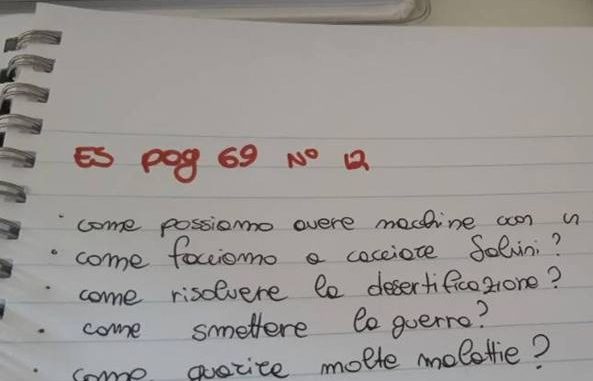 ES pag 69 N° 12
• come possiamo avere macchine con u
• come facciamo a cacciare Salvini?
• come risolvere la desertificazione?
• come smettere la guerra?
• come guarire molte malattie?